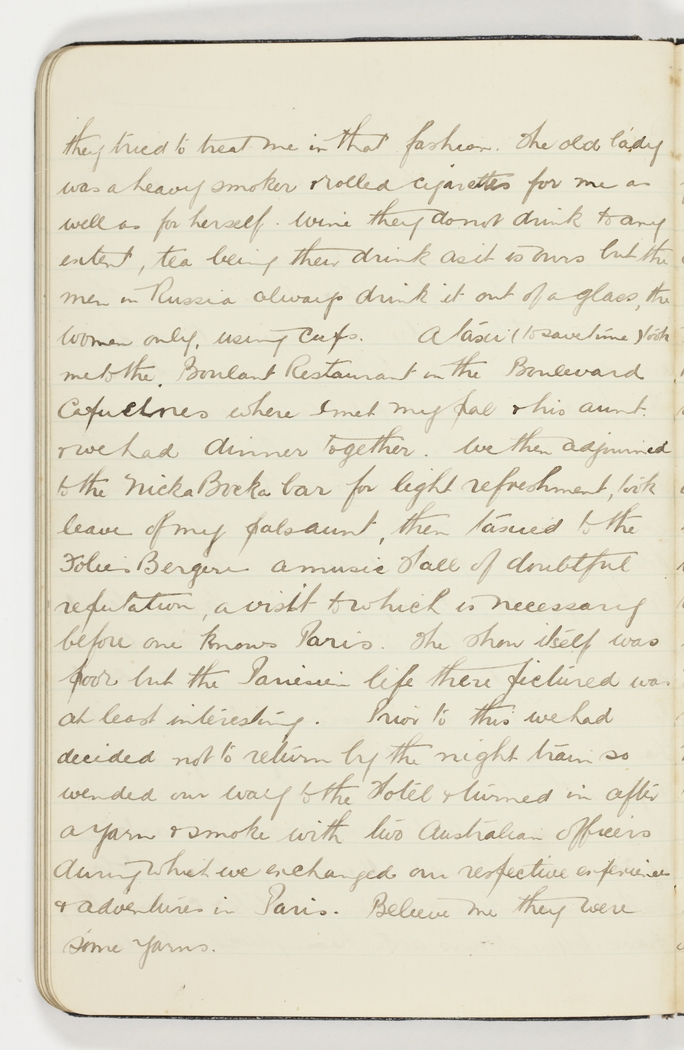 they tried to treat me in that fashion. The old lady
was a heavy smoker & rolled cigarettes for me as
well as for herself. Wine they do not drink to any
extent, tea being their drink as it is ours but the
men in Russia always drink it out of a glass, the
women only, using cups. A taxi (to save time) took
me to the Boulant Restaurant in the Boulevard
Capucines where I met my pal & his aunt.
& we had dinner together. We then adjourned
to the Nicka Bocka bar for light refreshment, took
leave of my pals aunt, then taxied to the
Folies Bergere a music Hall of doubtful
reputation, a visit to which is necessary
before one knows Paris. The show itself was
poor but the Parisien life there pictured was
at least interesting. Prior to this we had
decided not to return by the night train so
wended our way to the Hotel & turned in after
a yarn & smoke with two Australian officers
during which we exchanged our respective experiences
& adventures in Paris. Believe me they were
some yarns.